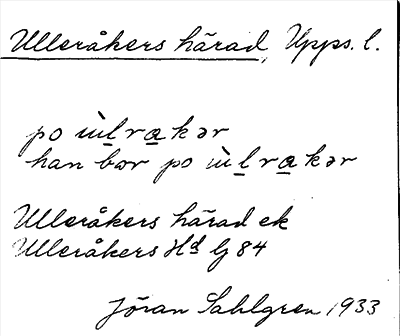 Ulleråkers härad, Upps. l.
po ùl̲ra̲kər
han bor po ùl̲ra̲kər
Ulleråkers härad ek
Ulleråkers Hd G 84
Jöran Sahlgren 1933